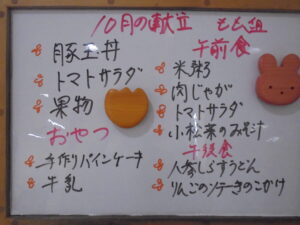 10月の献立 もも組
豚玉丼
トマトサラダ
果物
おやつ
手作りパインケーキ
牛乳
午前食
米粥
肉じゃが
トマトサラダ
小松菜のみそ汁
午後食
人参しらすうどん
りんごのソテーきのこかけ